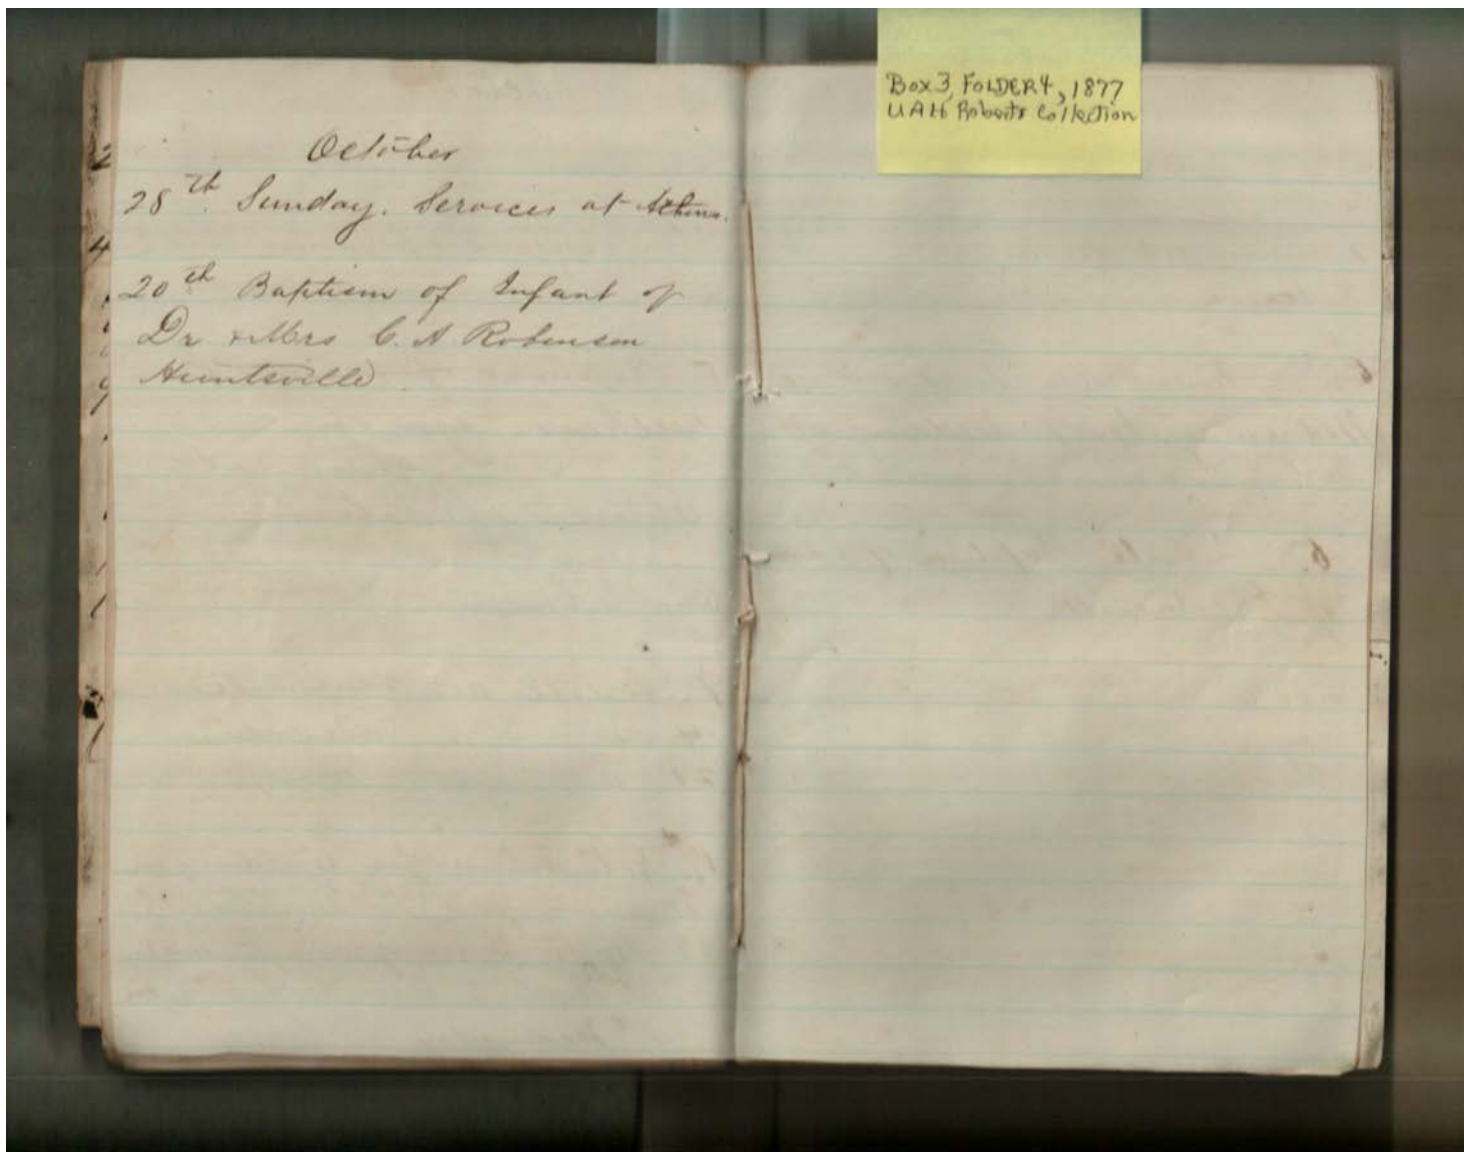 October
28th Sunday. Services at Athens.
20th Baptism of Infant of
Dr & Mrs C. A Robinson
Huntsville
Box 3, FOLDER 4, 1877
UAH Roberts Collection